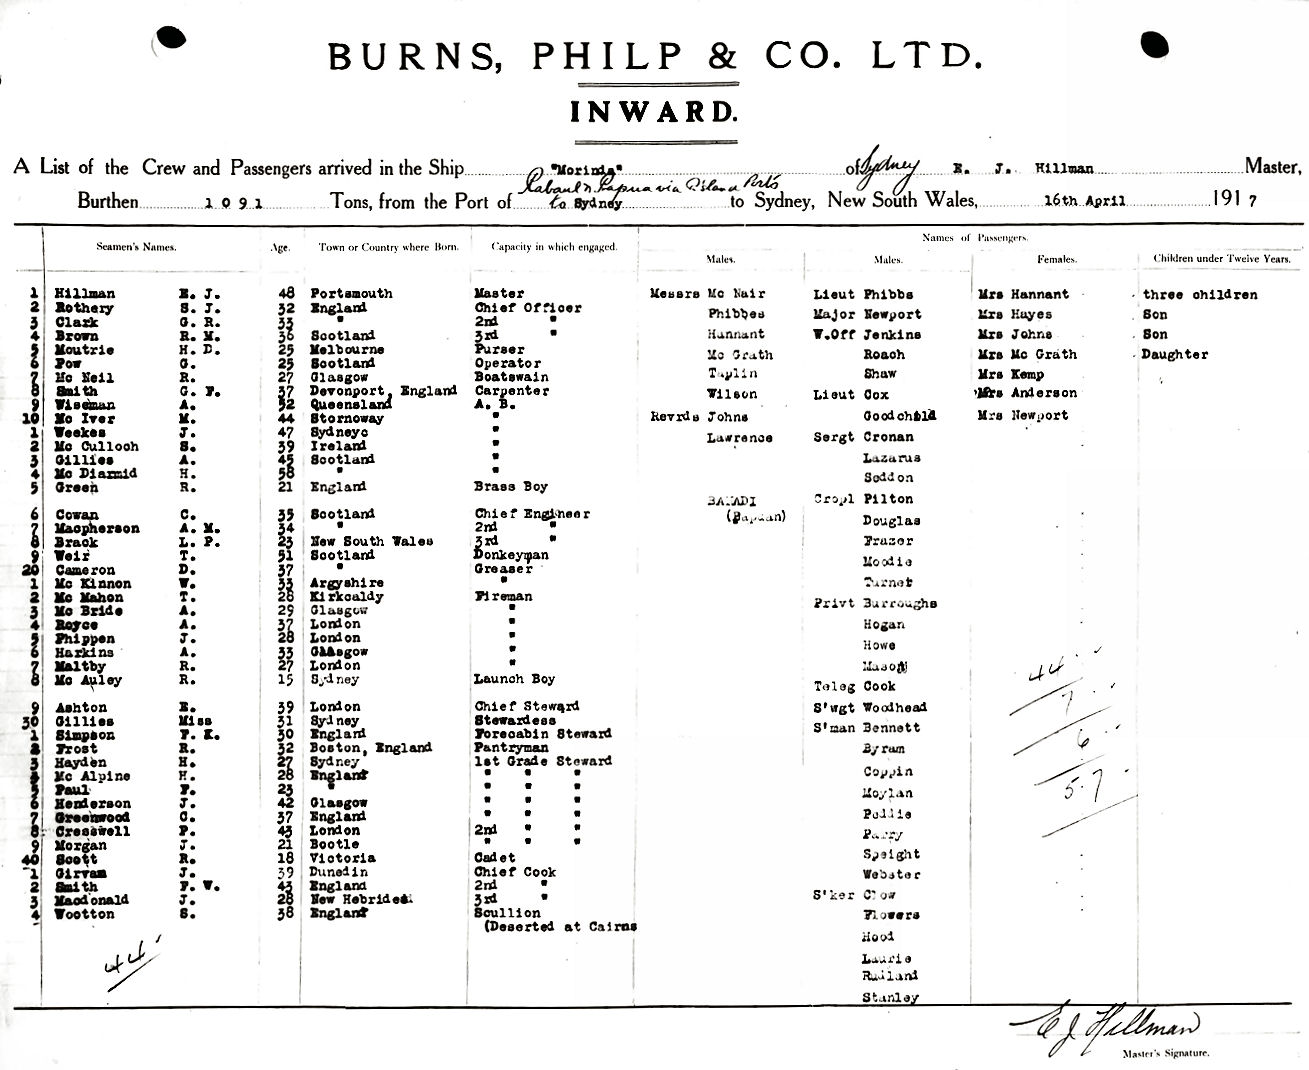 BURNS, PHILP & CO. LTD.
INWARD.
A List of the Crew and Passengers arrived in the Ship "Morinda" of Sydney E. J. Hillman Master,
Rabaul & Papua via Island Ports
Burthen 1091 Tons, from the Port of to Sydney to Sydney, New South Wales, 16th April 1917
Names of Passengers.
Seamen's Names. Age. Town or Country where Born. Capacity in which engaged. Males. Males. Females. Children under Twelve Years.
1 Hillman E. J. 48 Portsmouth Master Messrs Mc Nair Lieut Phibbs Mrs Hannant three children
2 Rothery S. J. 32 England Chief Officer Phibbes Major Newport Mrs Hayes Son
3 Clark G. R. 33 " 2nd " Hannant W.Off Jenkins Mrs Johns Son
4 Brown R. M. 36 Scotland 3rd " Mc Grath Roach Mrs Mc Grath Daughter
5 Moutrie H. D. 25 Melbourne Purser Taplin Shaw Mrs Kemp
6 Pow G. 25 Scotland Operator Wilson Lieut Cox Mrs Anderson
7 Mc Neil R. 27 Glasgow Boatswain Revrds Johns Goodchild Mrs Newport
8 Smith G. F. 37 Devonport, England Carpenter Lawrence Sergt Cronan
9 Wiseman A. 52 Queensland A. B. Lazarus
10 Mc Iver M. 44 Stornoway " Seddon
1 Weekes J. 47 Sydneyc " BAKADI Cropl Pilton
2 Mc Culloch S. 39 Ireland " (Papuan) Douglas
3 Gillies A. 45 Scotland " Frazer
4 Mc Diarmid H. 58 " " Moodie
5 Green R. 21 England Brass Boy Turnet
6 Cowan C. 35 Scotland Chief Engineer Privt Burroughs
7 Macpherson A. M. 34 " 2nd " Hogan
8 Brack L. P. 23 New South Wales 3rd " Howe
9 Weir T. 51 Scotland Donkeyman Mason
20 Cameron D. 37 " Greaser Teleg Cook
1 Mc Kinnon W. 33 Argyshire " S'wgt Woodhead
2 Mc Mahon T. 28 Kirkcaldy Fireman S'man Bennett
3 Mc Bride A. 29 Glasgow " Byram
4 Royce A. 37 London " Coppin
5 Phippen J. 28 London " Moylan
6 Harkins A. 33 Glasgow " Pullie
7 Maltby R. 27 London " Parry
8 Mc Auley R. 15 Sydney Launch Boy Speight
9 Ashton E. 39 London Chief Steward Webster
30 Gillies Miss 31 Sydney Stewardess S'ker Crow
1 Simpson F. E. 30 England Forecabin Steward Flowers
2 Frost R. 32 Boston, England Pantryman Hood
3 Hayden H. 27 Sydney 1st Grade Steward Laurie
4 Mc Alpine H. 28 England " " " Rudland
5 Paul F. 23 " " " " Stanley
6 Henderson J. 42 Glasgow " " "
7 Greenwood C. 37 England " " "
8 Cresswell P. 43 London 2nd " "
9 Morgan J. 21 Bootle " " "
40 Scott R. 18 Victoria Cadet
1 Girvan J. 39 Dunedin Chief Cook
2 Smith F. W. 43 England 2nd "
3 Macdonald J. 28 New Hebrides 3rd "
4 Wootton S. 38 England Scullion
(Deserted at Cairns
44
44
7
6
57
E J Hillman
Master's Signature.